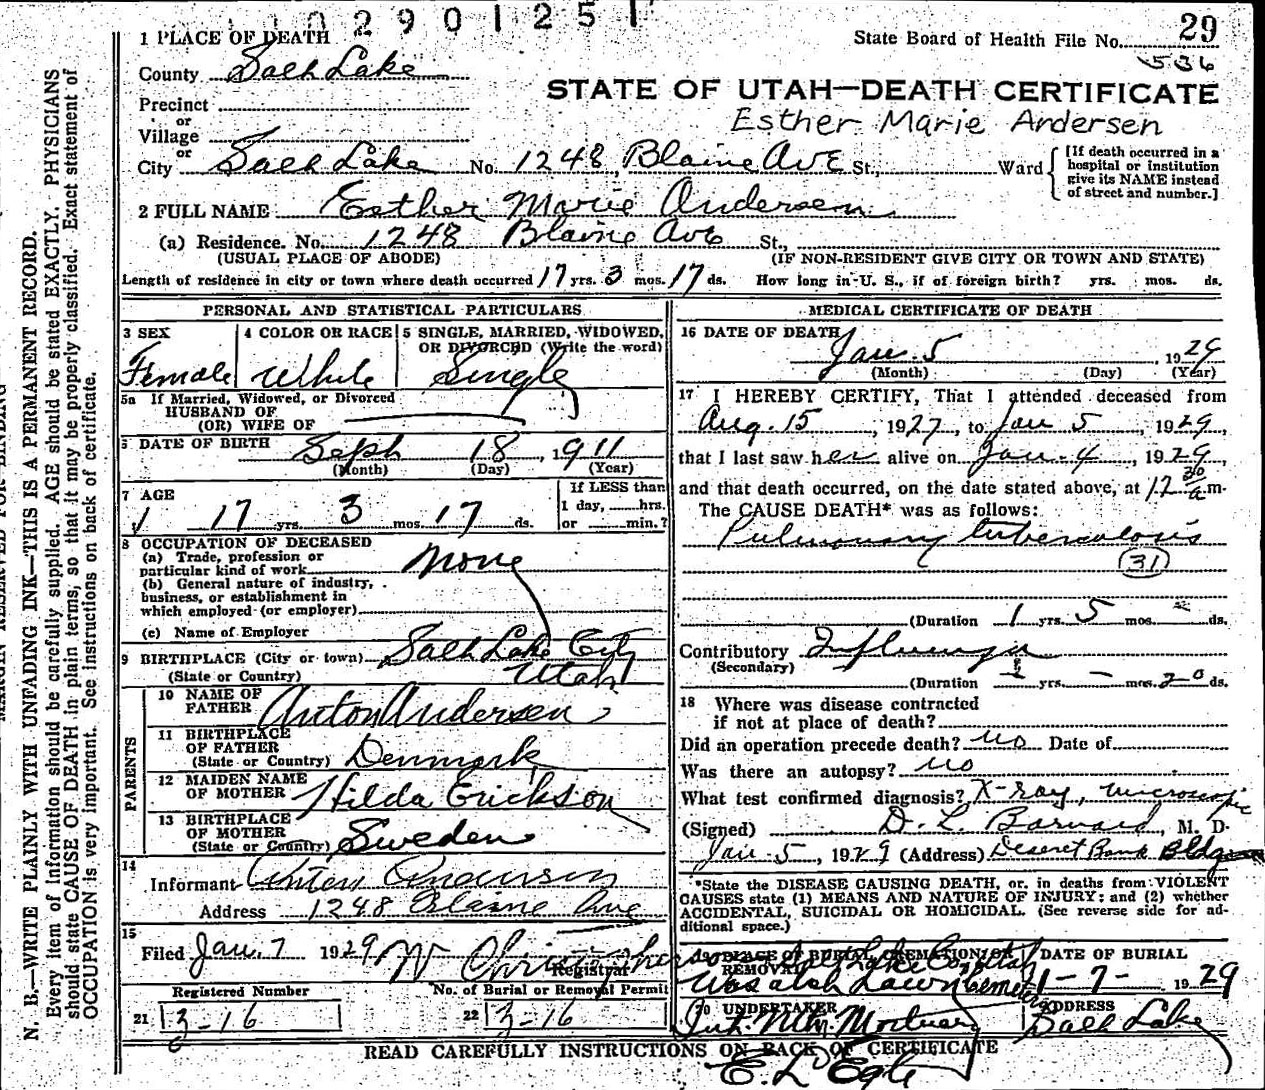 2901251
29
State Board of Health File No.
536
1 PLACE OF DEATH
County Salt Lake
STATE OF UTAH—DEATH CERTIFICATE
Precinct
or
Village
Esther Marie Andersen
or
City Salt Lake No. 1248 Blaine Ave St., Ward
[If death occurred in a hospital or institution give its NAME instead of street and number.]
2 FULL NAME Esther Marie Andersen
(a) Residence. No. 1248 Blaine Ave St.,
(USUAL PLACE OF ABODE) (IF NON-RESIDENT GIVE CITY OR TOWN AND STATE)
Length of residence in city or town where death occurred 17 yrs. 3 mos. 17 ds. How long in U. S., if of foreign birth? yrs. mos. ds.
PERSONAL AND STATISTICAL PARTICULARS
3 SEX
Female
4 COLOR OR RACE
White
5 SINGLE, MARRIED, WIDOWED, OR DIVORCED (Write the word)
Single
5a If Married, Widowed, or Divorced
HUSBAND OF
(OR) WIFE OF
6 DATE OF BIRTH Sept 18, 1911
(Month) (Day) (Year)
7 AGE
17 yrs. 3 mos. 17 ds.
If LESS than
1 day, hrs.
or min.?
8 OCCUPATION OF DECEASED
(a) Trade, profession or
particular kind of work None
(b) General nature of industry,
business, or establishment in
which employed (or employer)
(c) Name of Employer
9 BIRTHPLACE (City or town) Salt Lake City
(State or Country) Utah
PARENTS
10 NAME OF
FATHER Anton Andersen
11 BIRTHPLACE
OF FATHER
(State or Country) Denmark
12 MAIDEN NAME
OF MOTHER Hilda Erickson
13 BIRTHPLACE
OF MOTHER
(State or Country) Sweden
14
Informant Anton Andersen
Address 1248 Blaine Ave
15
Filed Jan. 7 1929 W Christopherson
Registrar
Registered Number No. of Burial or Removal Permit
21 3-16 22 3-16
MEDICAL CERTIFICATE OF DEATH
16 DATE OF DEATH
Jan. 5 1929
(Month) (Day) (Year)
17 I HEREBY CERTIFY, That I attended deceased from
Aug. 15, 1927, to Jan 5, 1929,
that I last saw her alive on Jan. 4, 1929,
and that death occurred, on the date stated above, at 12 30 a m.
The CAUSE DEATH* was as follows:
Pulmonary tuberculosis
(31)
(Duration 1 yrs. 5 mos. — ds.
Contributory Influenza
(Secondary)
(Duration — yrs. — mos. 20 ds.
18 Where was disease contracted
if not at place of death?
Did an operation precede death? no Date of
Was there an autopsy? no
What test confirmed diagnosis? X-ray, microscopic
(Signed) D. L. Barnard, M. D.
Jan. 5, 1929 (Address) Deseret Bank Bldg
*State the DISEASE CAUSING DEATH, or in deaths from VIOLENT
CAUSES state (1) MEANS AND NATURE OF INJURY; and (2) whether
ACCIDENTAL, SUICIDAL OR HOMICIDAL. (See reverse side for additional space.)
19 PLACE OF BURIAL, CREMATION OR REMOVAL
Salt Lake County
Wasatch Lawn Cemetery
DATE OF BURIAL
1-7-1929
20 UNDERTAKER
Int. Mtn. Mortuary
ADDRESS
Salt Lake
READ CAREFULLY INSTRUCTIONS ON BACK OF CERTIFICATE
N. B.—WRITE PLAINLY WITH UNFADING INK—THIS IS A PERMANENT RECORD.
Every item of information should be carefully supplied. AGE should be stated EXACTLY. PHYSICIANS
should state CAUSE OF DEATH in plain terms, so that it may be properly classified. Exact statement of
OCCUPATION is very important. See instructions on back of certificate.
MARGIN RESERVED FOR BINDING